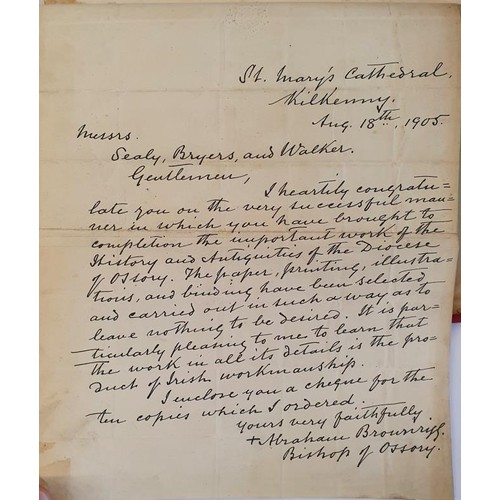 St. Mary's Cathedral,
Kilkenny.
Aug. 18th, 1905.
Messrs.
Sealy, Bryers, and Walker.
Gentlemen,
I heartily congratu=
late you on the very successful man=
ner in which you have brought to
completion the important work of the
History and Antiquities of the Diocese
of Ossory. The paper, printing, illustra=
tions, and binding have been selected
and carried out in such a way as to
leave nothing to be desired. It is par=
ticularly pleasing to me to learn that
the work in all its details is the pro=
duct of Irish workmanship.
I enclose you a cheque for the
ten copies which I ordered.
Yours very faithfully
+Abraham Brownrigg.
Bishop of Ossory.